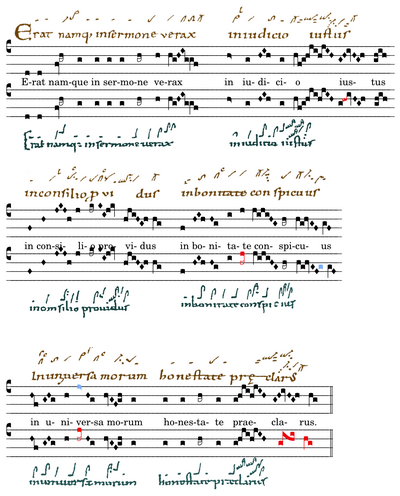 Erat namq; insermone verax iniudicio iustus
E-rat nam-que in ser-mo-ne ve-rax in iu-di-ci-o ius-tus
Erat namq; insermone verax iniudicio iustus
inconsilio provi dus inbonitate conspicuus
in con-si-li-o pro-vi-dus in bo-ni-ta-te con-spi-cu-us
inconsilio providus inbonitate conspicuus
Inuniversa morum honestate preclarus
in u-ni-ver-sa mo-rum ho-nes-ta-te prae-cla-rus.
inuniversa morum honestate preclarus